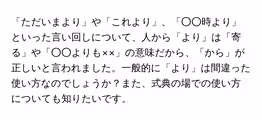 「ただいまより」や「これより」、「〇〇時より」
といった言い回しについて、人から「より」は「寄
る」や「〇〇よりも××」の意味だから、「から」が
正しいと言われました。一般的に「より」は間違った
使い方なのでしょうか？また、式典の場での使い方
についても知りたいです。